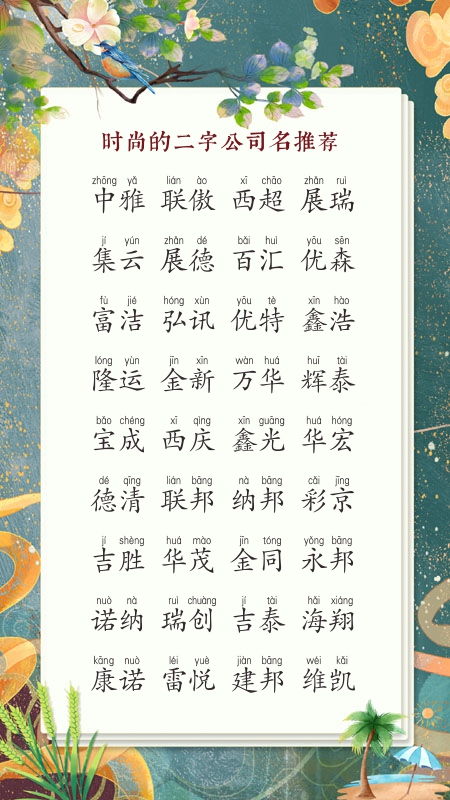 时尚的二字公司名推荐
zhōng yǎ lián ào xī chāo zhǎn ruì
中雅 联傲 西超 展瑞
jí yún zhǎn dé bǎi huì yōu sēn
集云 展德 百汇 优森
fù jié hóng xùn yōu tè xīn hào
富洁 弘讯 优特 鑫浩
lóng yùn jīn xīn wàn huá huī tài
隆运 金新 万华 辉泰
bǎo chéng xī qìng xīn guāng huá hóng
宝成 西庆 鑫光 华宏
dé qīng lián bāng nà bāng cǎi jīng
德清 联邦 纳邦 彩京
jí shèng huá mào jīn tóng yǒng bāng
吉胜 华茂 金同 永邦
nuò nà ruì chuàng jí tài hǎi xiáng
诺纳 瑞创 吉泰 海翔
kāng nuò léi yuè jiàn bāng wéi kǎi
康诺 雷悦 建邦 维凯